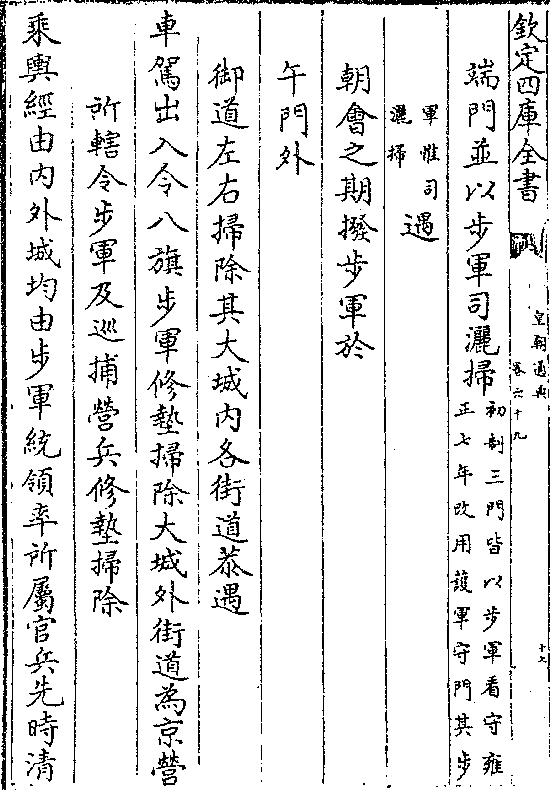 欽定四庫全書
皇朝通典
卷六十九
十七
端門並以步軍司灑掃初制三門皆以步軍看守雍
正七年改用護軍守門其步
軍惟司
灑掃遇
朝會之期撥步軍於
午門外
御道左右掃除其大城内各街道恭遇
車駕出入令八旗步軍修墊掃除大城外街道為京營
所轄令步軍及巡捕營兵修墊掃除
乘輿經由内外城均由步軍統領率所屬官兵先時清